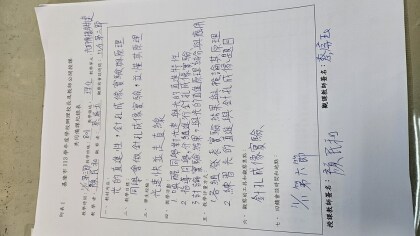 附表1
基隆市113學年度學校辦理校長及教師公開授課
共同備課紀錄表
一、教材內容:
光的直進性,針孔成像實驗與原理
二、教學目標:
同學會做針孔成像實驗,並懂其原理
三、學生經驗:
光速快並走直線
四、教學活動:
1. 喚醒同學對光速與光的直進特性
2. 指導同學,分組進行針孔成像實驗
3. 討論實驗結果,與光的直進原理結合與應用
五、教學評量方式:
1. 各組發表實驗結果與推論其原理
2. 練習光的直進與針孔成像題目
六、觀察的工具和觀察焦點:
針孔成像實驗
七、回饋會談時間和地點:
11/1 第六節
授課教師簽名: 顏民和
觀課教師簽名: